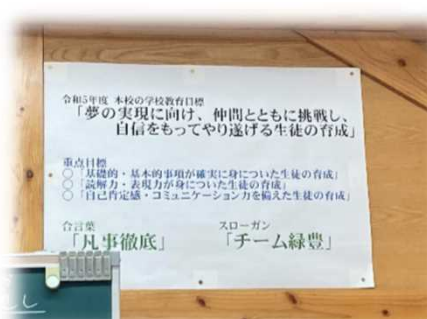 令和5年度 本校の学校教育目標
「夢の実現に向け、仲間とともに挑戦し、
自信をもってやり遂げる生徒の育成」
重点目標
○「基礎的・基本的事項が確実に身についた生徒の育成」
○「読解力・表現力が身についた生徒の育成」
○「自己肯定感・コミュニケーション力を備えた生徒の育成」
合言葉
「凡事徹底」
スローガン
「チーム緑豊」